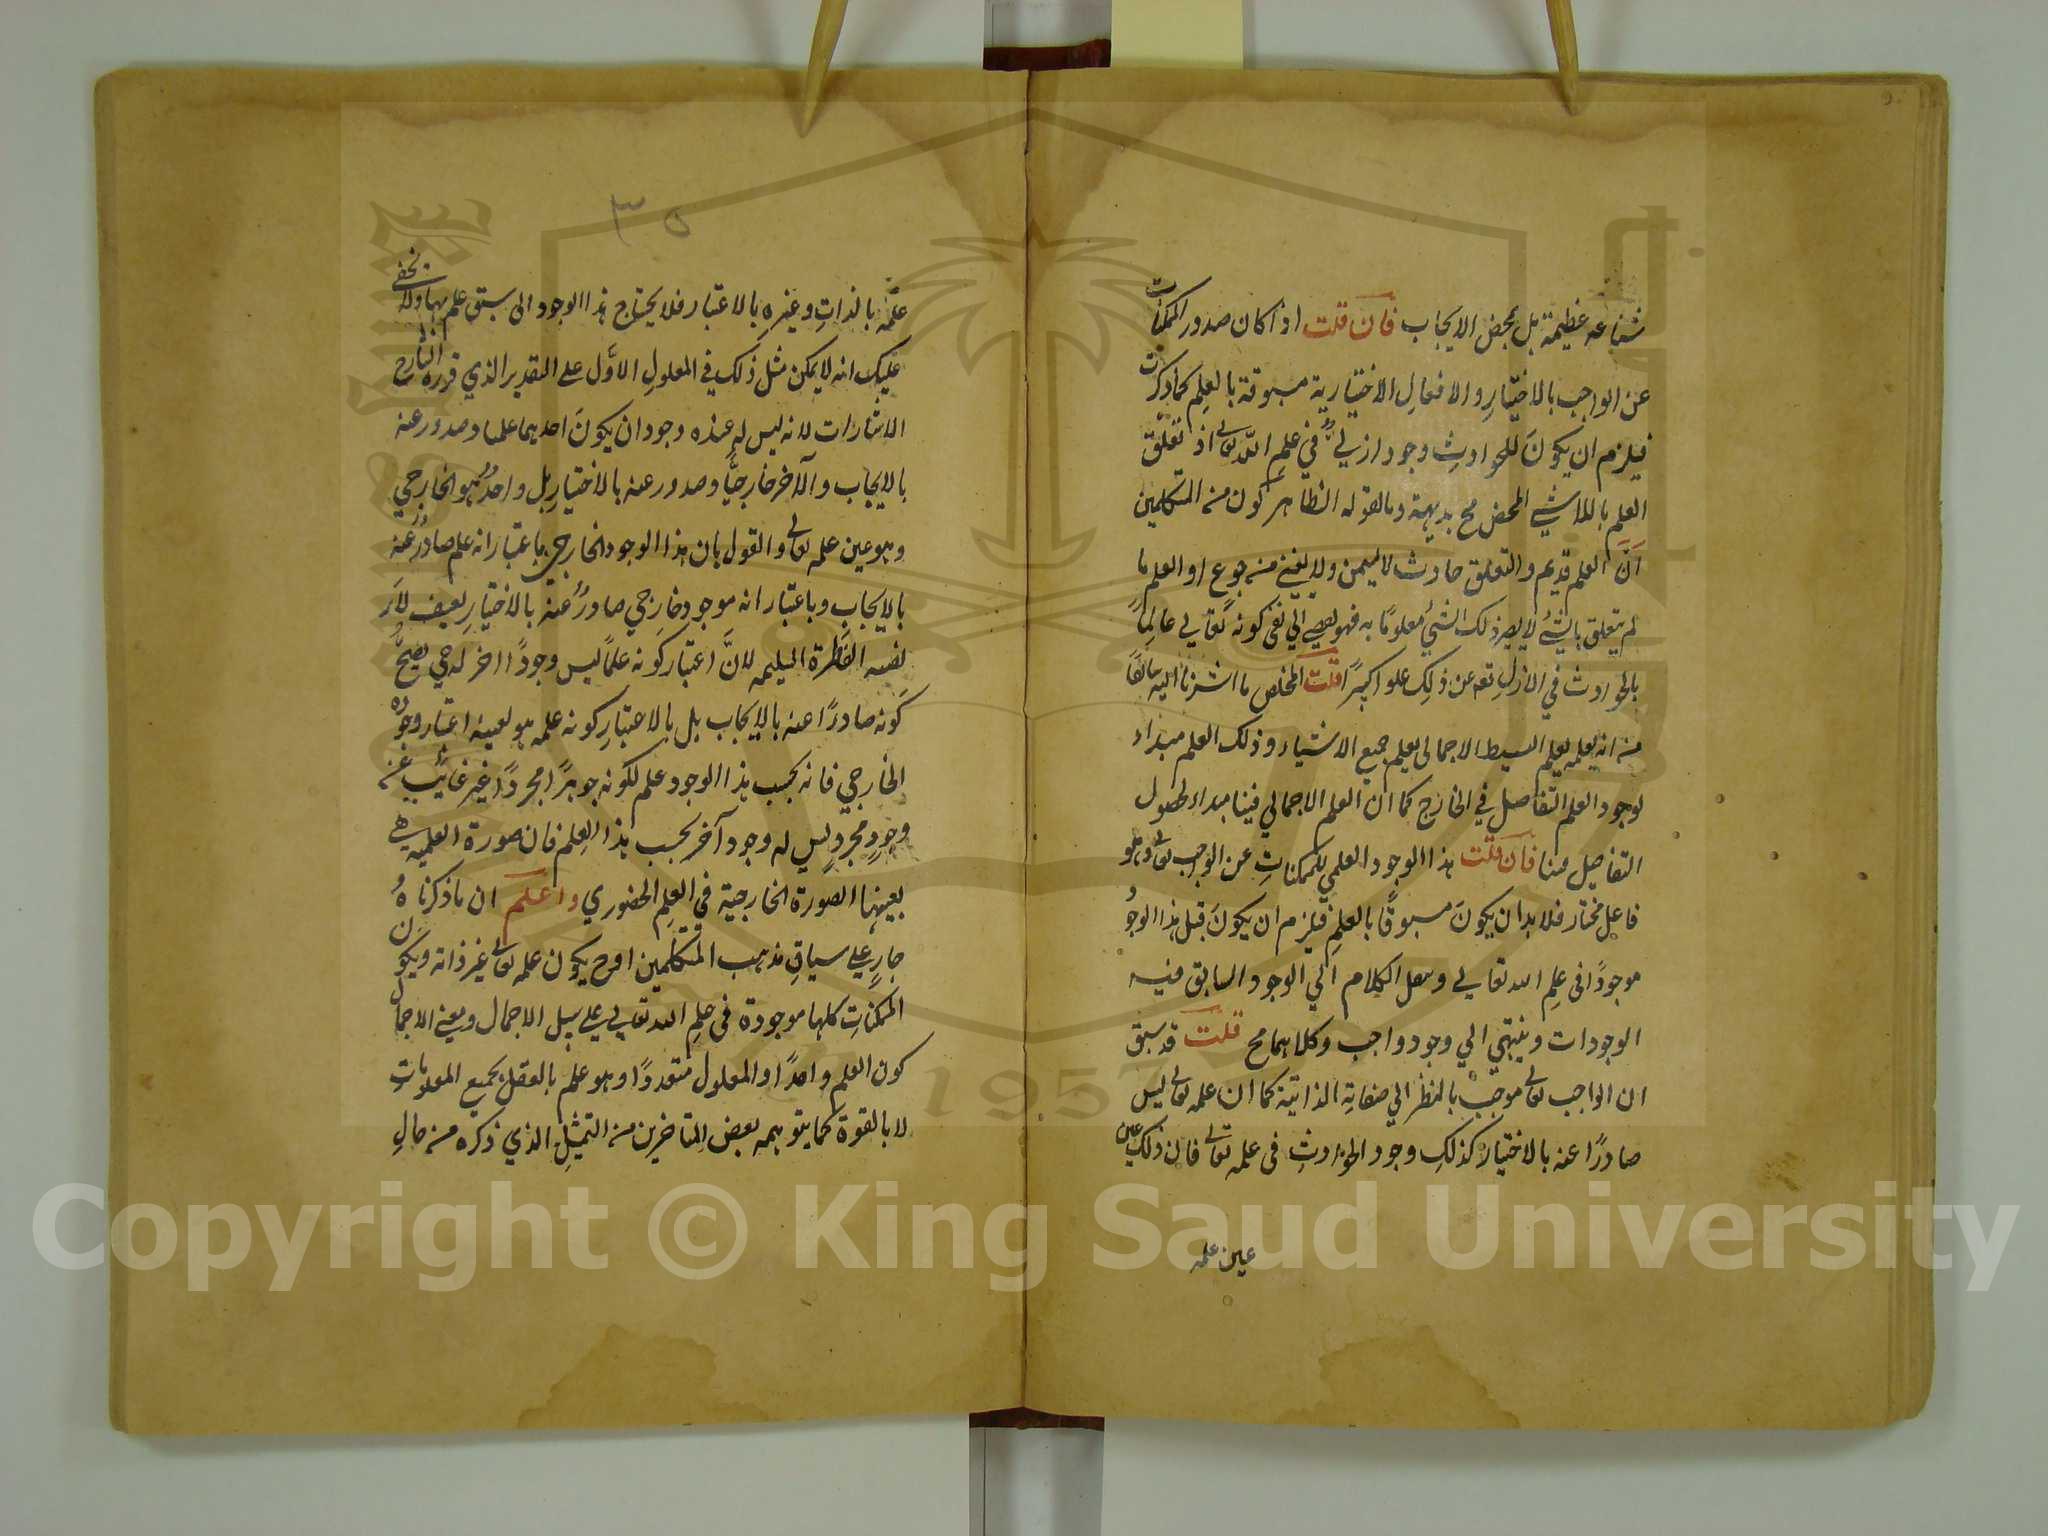 شناعه عظيمة بل بمحض الايجاب فان قلت اذا كان صدور الممكنات
عن الواجب بالاختيار والافعال الاختيارية مسبوقة بالعلم كما ذكرت
فيلزم ان يكون للحوادث وجود ازلي في علم الله تعالى اذ تعلق
العلم باللاشيئ المحض مح بديهة وما لقوله الظاهريون من المتكلمين
ان العلم قديم والتعلق حادث لا يسمن ولا يغني من جوع او العلم ما
لم يتعلق بالشئ لا يصير ذلك الشئ معلومًا به فهو يفضي الي نفي كونه تعالي عالمًا
بالحوادث في الازل تعه عن ذلك علوا كبيرًا قلت المخلص ما اشرنا اليه سالفًا
من انه يعلمه بعلم البسيط الاجمالى يعلم جميع الاشياء وذلك العلم مبداء
لوجود العلم التفاصل في الخارج كما ان العلم الاجمالي فينا مبداء لحصول
التفاصيل منا فان قلت هذا الوجود العلمي للممكنات عن الواجب تعالى وهو
فاعل مختار فلا بد ان يكون مسبوقًا بالعلم فيلزم ان يكون قبل هذا الوجود
موجودًا فى علم الله تعالي وننقل الكلام الي الوجود السابق فيه
الوجودات وينتهي الي وجود واجب وكلاهما مح قلت قد سبق
ان الواجب تعالى موجب بالنظر الي صفاته الذاتية كما ان علمه تعالى ليس
صادرًا عنه بالاختيار كذلك وجود الحوادث فى علمه تعالى فان ذلك عين
عين علمه
٣٥
علمه بالذات وغيره بالاعتبار فلا يحتاج هذا الوجود الى سبق علم بها ولا يخفى
عليك انه لا يمكن مثل ذلك في المعلول الاول على التقدير الذي قرره الشارح
الاشارات لانه ليس له عنده وجودان يكون احدهما علما وصدور عنه
بالايجاب والآخر خارجيًّا وصدور عنه بالاختيار بل واحد هو الخارجي
وهو عين علمه تعالى والقول بان هذا الوجود الخارجي باعتبار انه علم صادر عنه
بالايجاب وباعتبار انه موجود خارجي صادر عنه بالاختيار
الفطرة السليمه لان اعتبار كونه علمًا ليس وجودًا اخر له حي يصح
كونه صادرًا عنه بالايجاب بل بالاعتبار كونه علمه هو بعينه اعتبار وجوده
الخارجي فانه بحسب هذا الوجود علم لكونه جوهرًا مجردًا غير غائب عنه
وجود مجرد ليس له وجود آخر بحسب هذا العلم فان صورة العلميه هي
بعينها الصورة الخارجية في العلم الحضوري واعلم ان ما ذكرناه
جار علي سياق مذهب المتكلمين اذ ح يكون علمه تعالى غير ذاته ويكون
الممكنات كلها موجودة في علم الله تعالي علي سبيل الاجمال ومعني الاجمال
كون العلم واحدًا والمعلول متعددًا وهو علم بالعقل بجميع المعلومات
لا بالقوة كما يتوهمه بعض المتاخرين من التمثيل الذي ذكره من حال